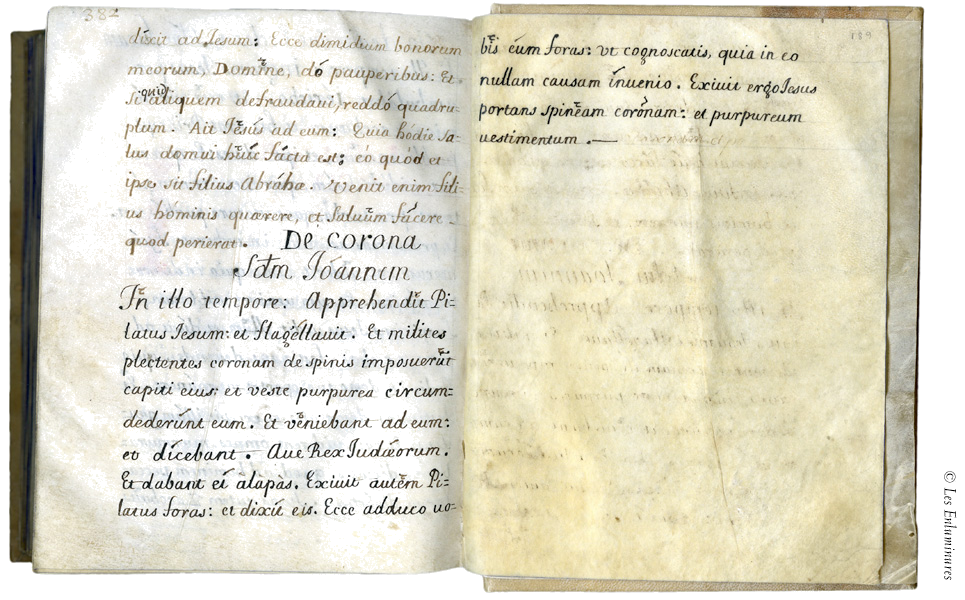 382
dixit ad Jesum: Ecce dimidium bonorum
meorum, Domine, dó pauperibus: Et
si quid aliquem defraudaui, reddó quadru-
plum. Ait Jesús ad eum: Quia hódie sa-
lus domui huic fácta est; eò quód et
ipse sit filius Abráhæ. Venit enim fili-
us hóminis quærere, et saluum fácere
quod perierat. De corona
Sdm Joánnem
In illo tempore: Apprehendit Pi=
latus Jesum: et flagéllauit. Et milites
plectentes coronam de spinis imposuerūt
capiti eius: et veste purpurea circum=
dedérunt eum. Et vēniebant ad eum:
et dícebant. Aue Rex Judæorum.
Et dabant eí álapas. Exiuit autēm Pi=
latus foras: et dixít eis. Ecce adduco uo=
189
bīs éum foras: vt cognoscatis, quia in eo
nullam causam ínuenio. Exiuit ergo Jesus
portans spinēam corònam: et purpureum
uestimentum.—
© Les Enluminures